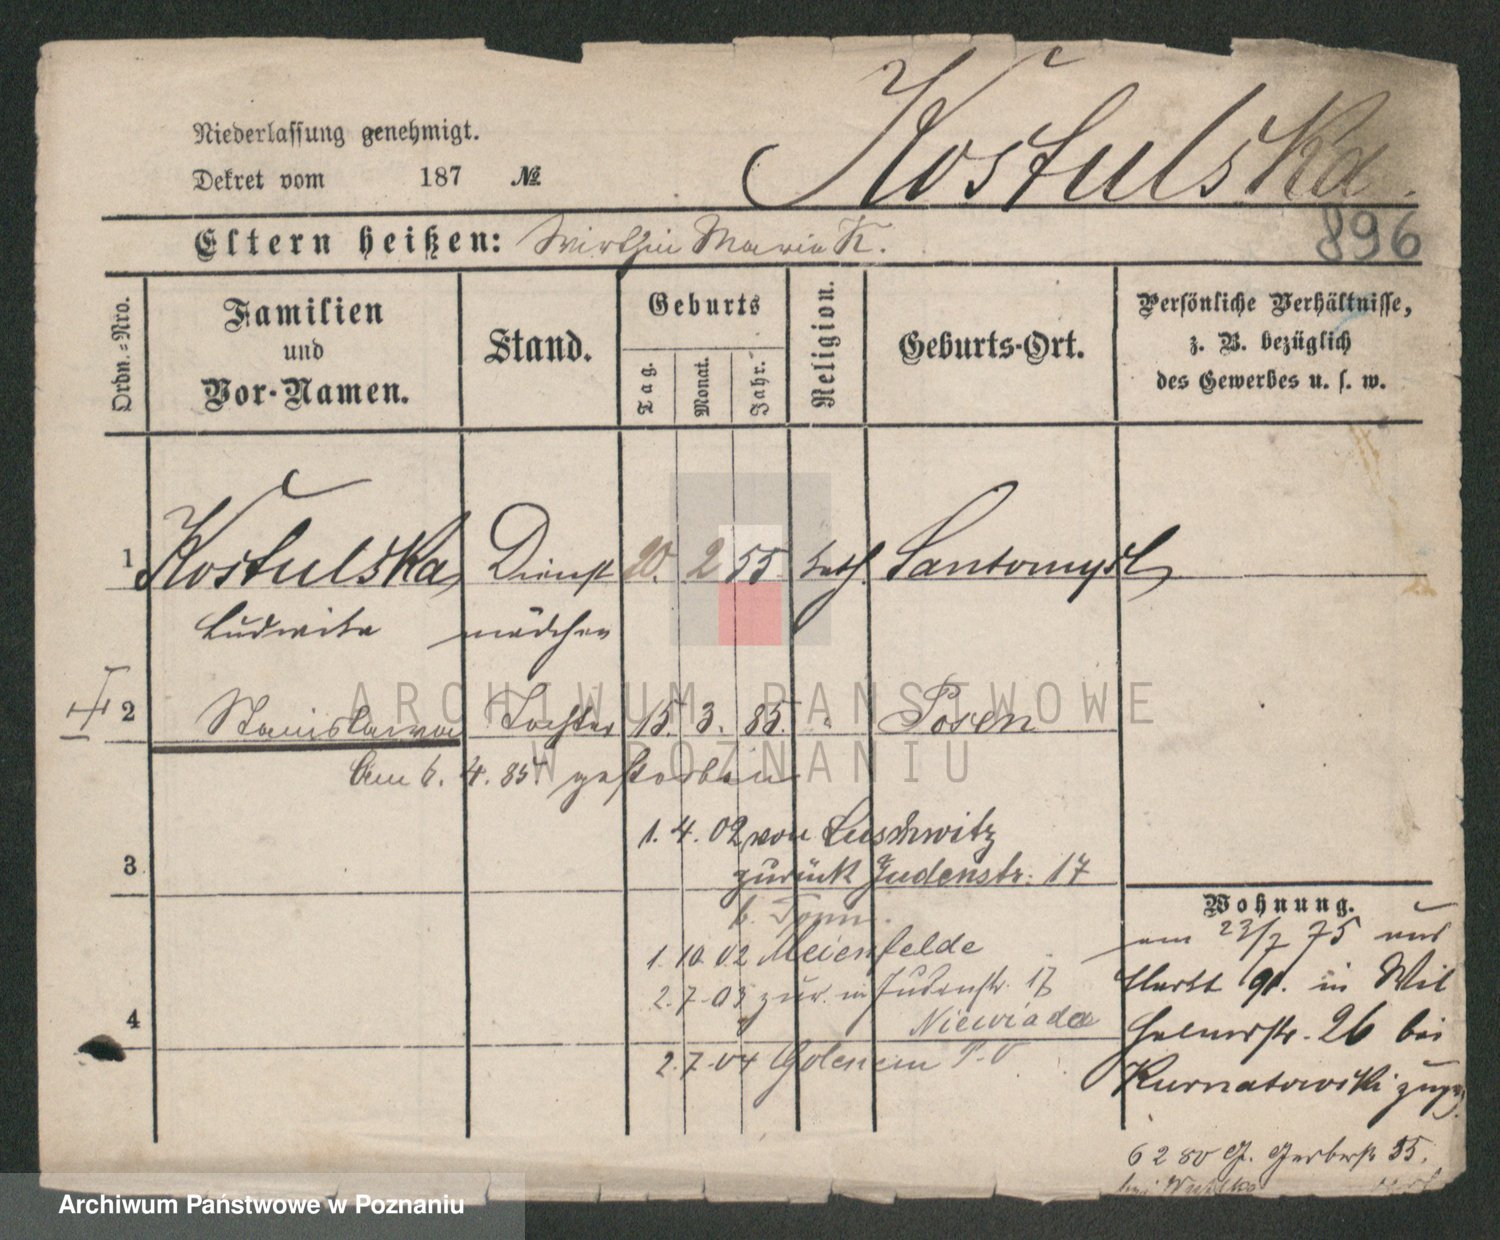 Kostulska.
Niederlassung genehmigt.
Dekret vom 187 №
896
Eltern heißen: Wirthin Maria K.
Ordn.-Nro.
Familien
und
Vor-Namen.
Stand.
Geburts
Tag.
Monat.
Jahr.
Religion.
Geburts-Ort.
Persönliche Verhältnisse,
z. B. bezüglich
des Gewerbes u. s. w.
1 Kostulska Dienst 20. 2 55 kath. Santomysl
Ludwika mädchen
2 Stanislawa Tochter 15. 3. 85. " Posen
Am 6. 4. 85. gestorben
1. 4. 02 von Luschwitz
3 zurück Judenstr. 17
1. 10. 02 Meienfelde
2. 7. 03 zur. in Judenstr. 17
Niewiada
4
2. 7. 04 Golencin
Wohnung.
am 23/7 75 aus
Markt 91. in Wil
helmstr. 26 bei
Kurnatowski zugez.
6 2 80 Gerberstr. 35.
bei
Archiwum Państwowe
w Poznaniu
Archiwum Państwowe w Poznaniu